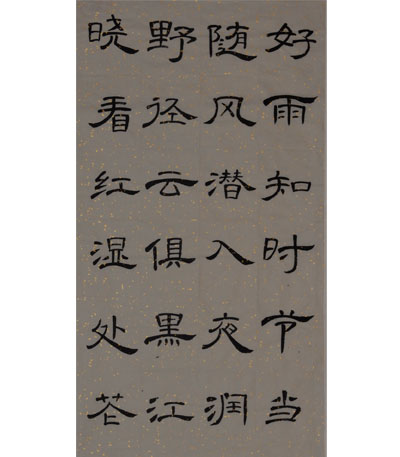 好雨知时节当
随风潜入夜润
野径云俱黑江
晓看红湿处花